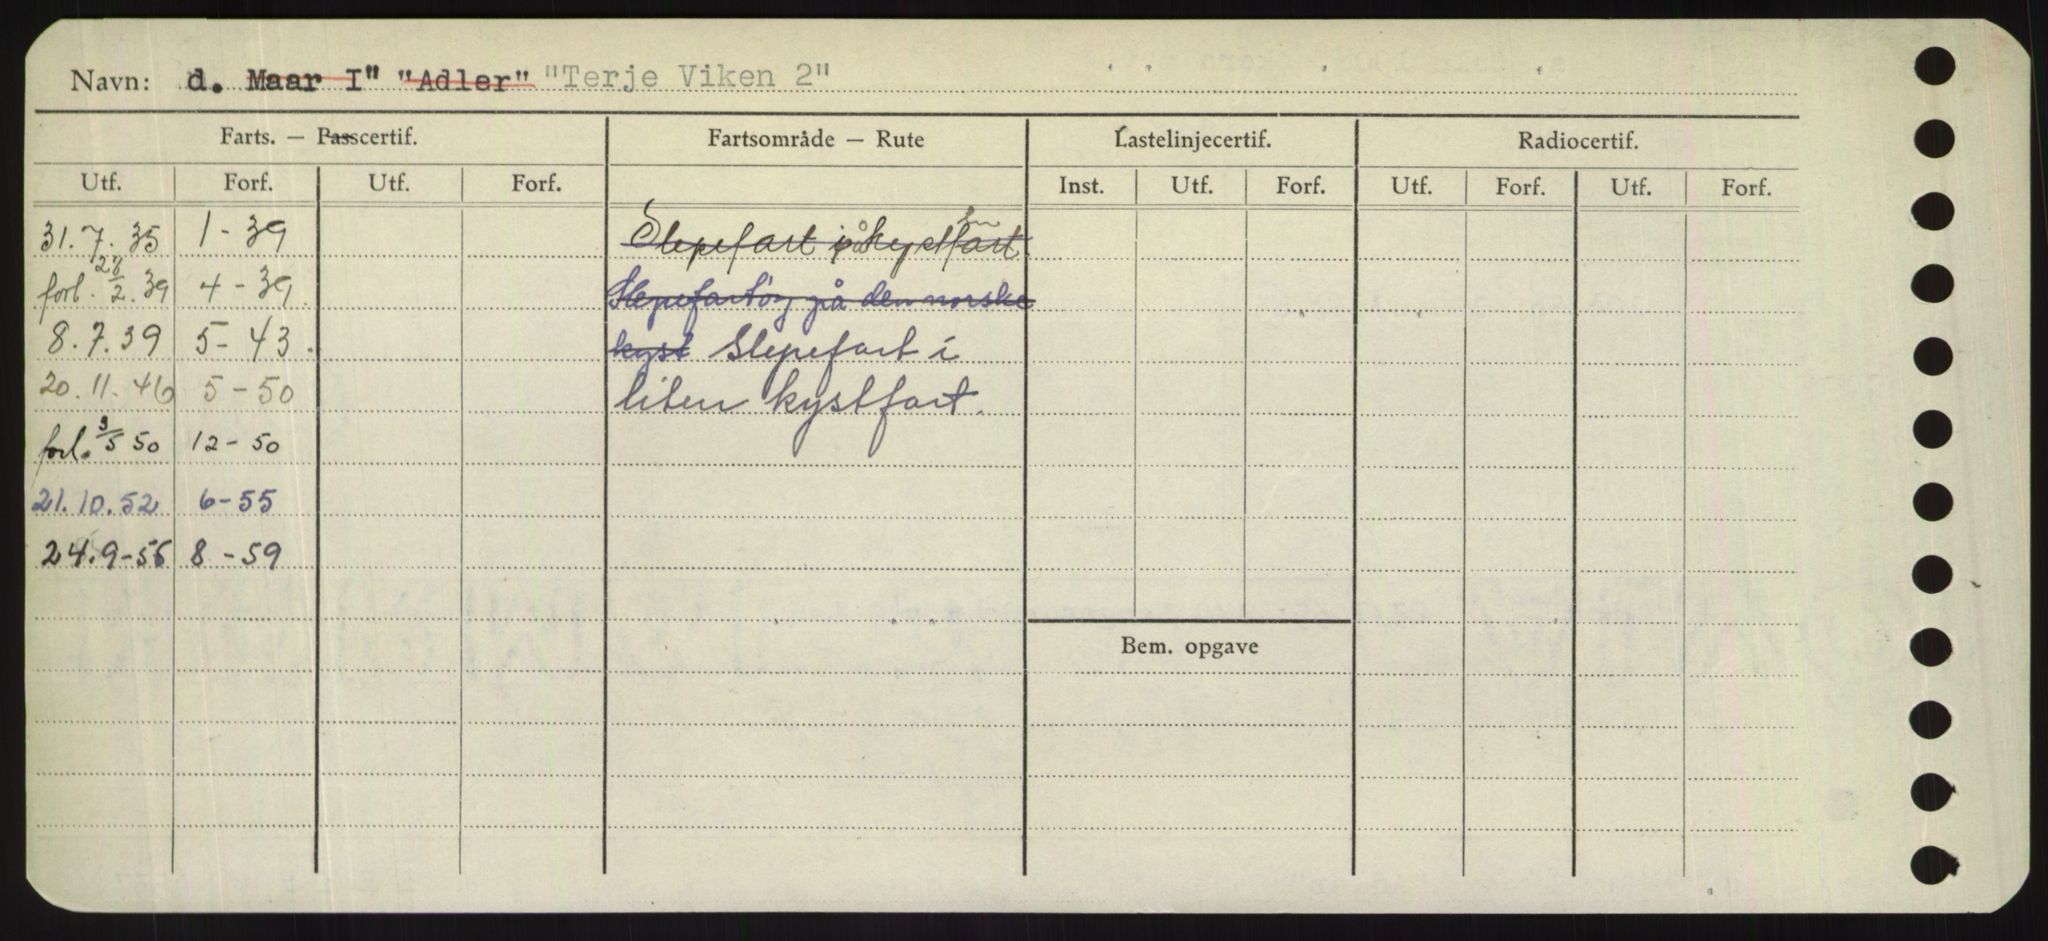 Navn: d. Maar I" "Adler" "Terje Viken 2"
Farts. — Passcertif. Fartsområde — Rute Lastelinjecertif. Radiocertif.
Utf. Forf. Utf. Forf. Inst. Utf. Forf. Utf. Forf. Utf. Forf.
31.7.35 1-39 Slepefart på kystfart
forl. 28/2.39 4-39 Slepefartøy på den norske
8.7.39 5-43. kyst Slepefart i
20.11.46 5-50 liten kystfart.
forl. 3/5 50 12-50
21.10.52 6-55
24.9-56 8-59
Bem. opgave